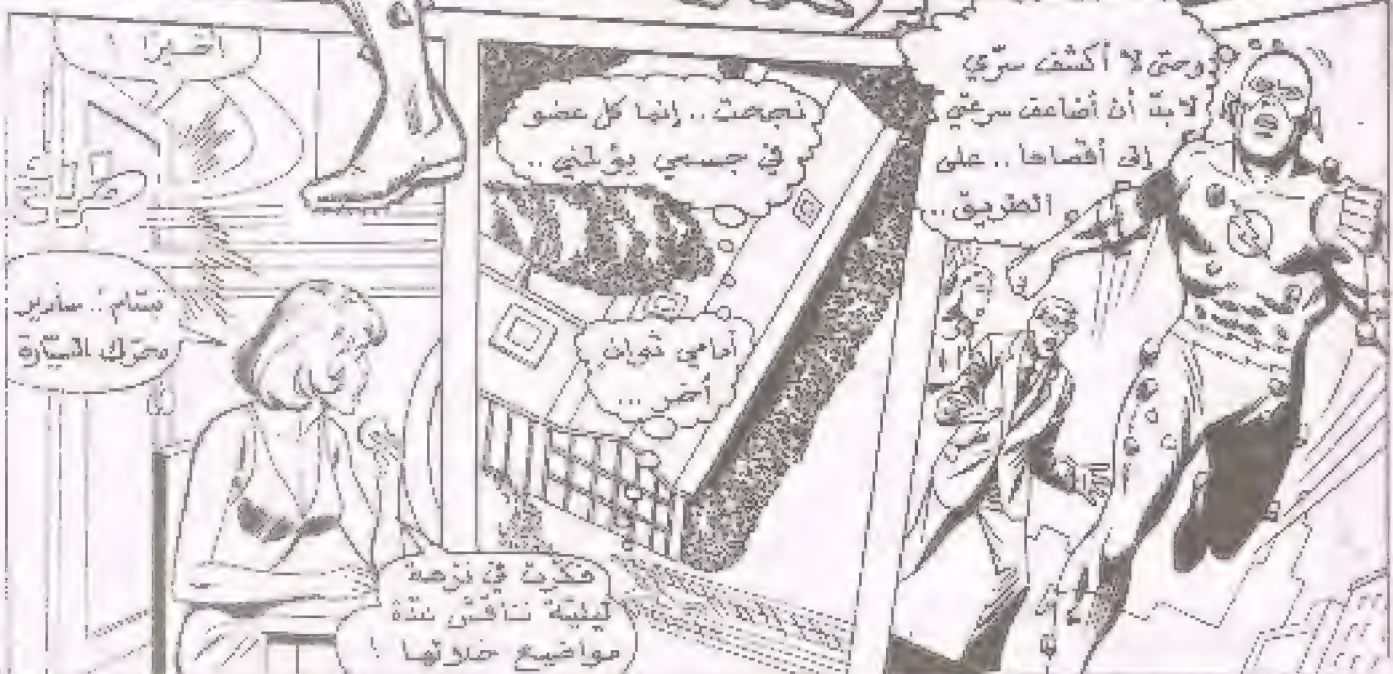 وحتى لا أكشف سرّي
لا بدّ أن أضاعف سرعتي
إلى أقصاها .. على
الطريق ..
نجحت .. إنما كل عضو
في جسمي يؤلمني ..
أمامي ثوان
أخيراً !
سام ..
محرّك السيّارة
فكرت في نزهة
ليليّة نناقش عدّة
مواضيع خلالها !